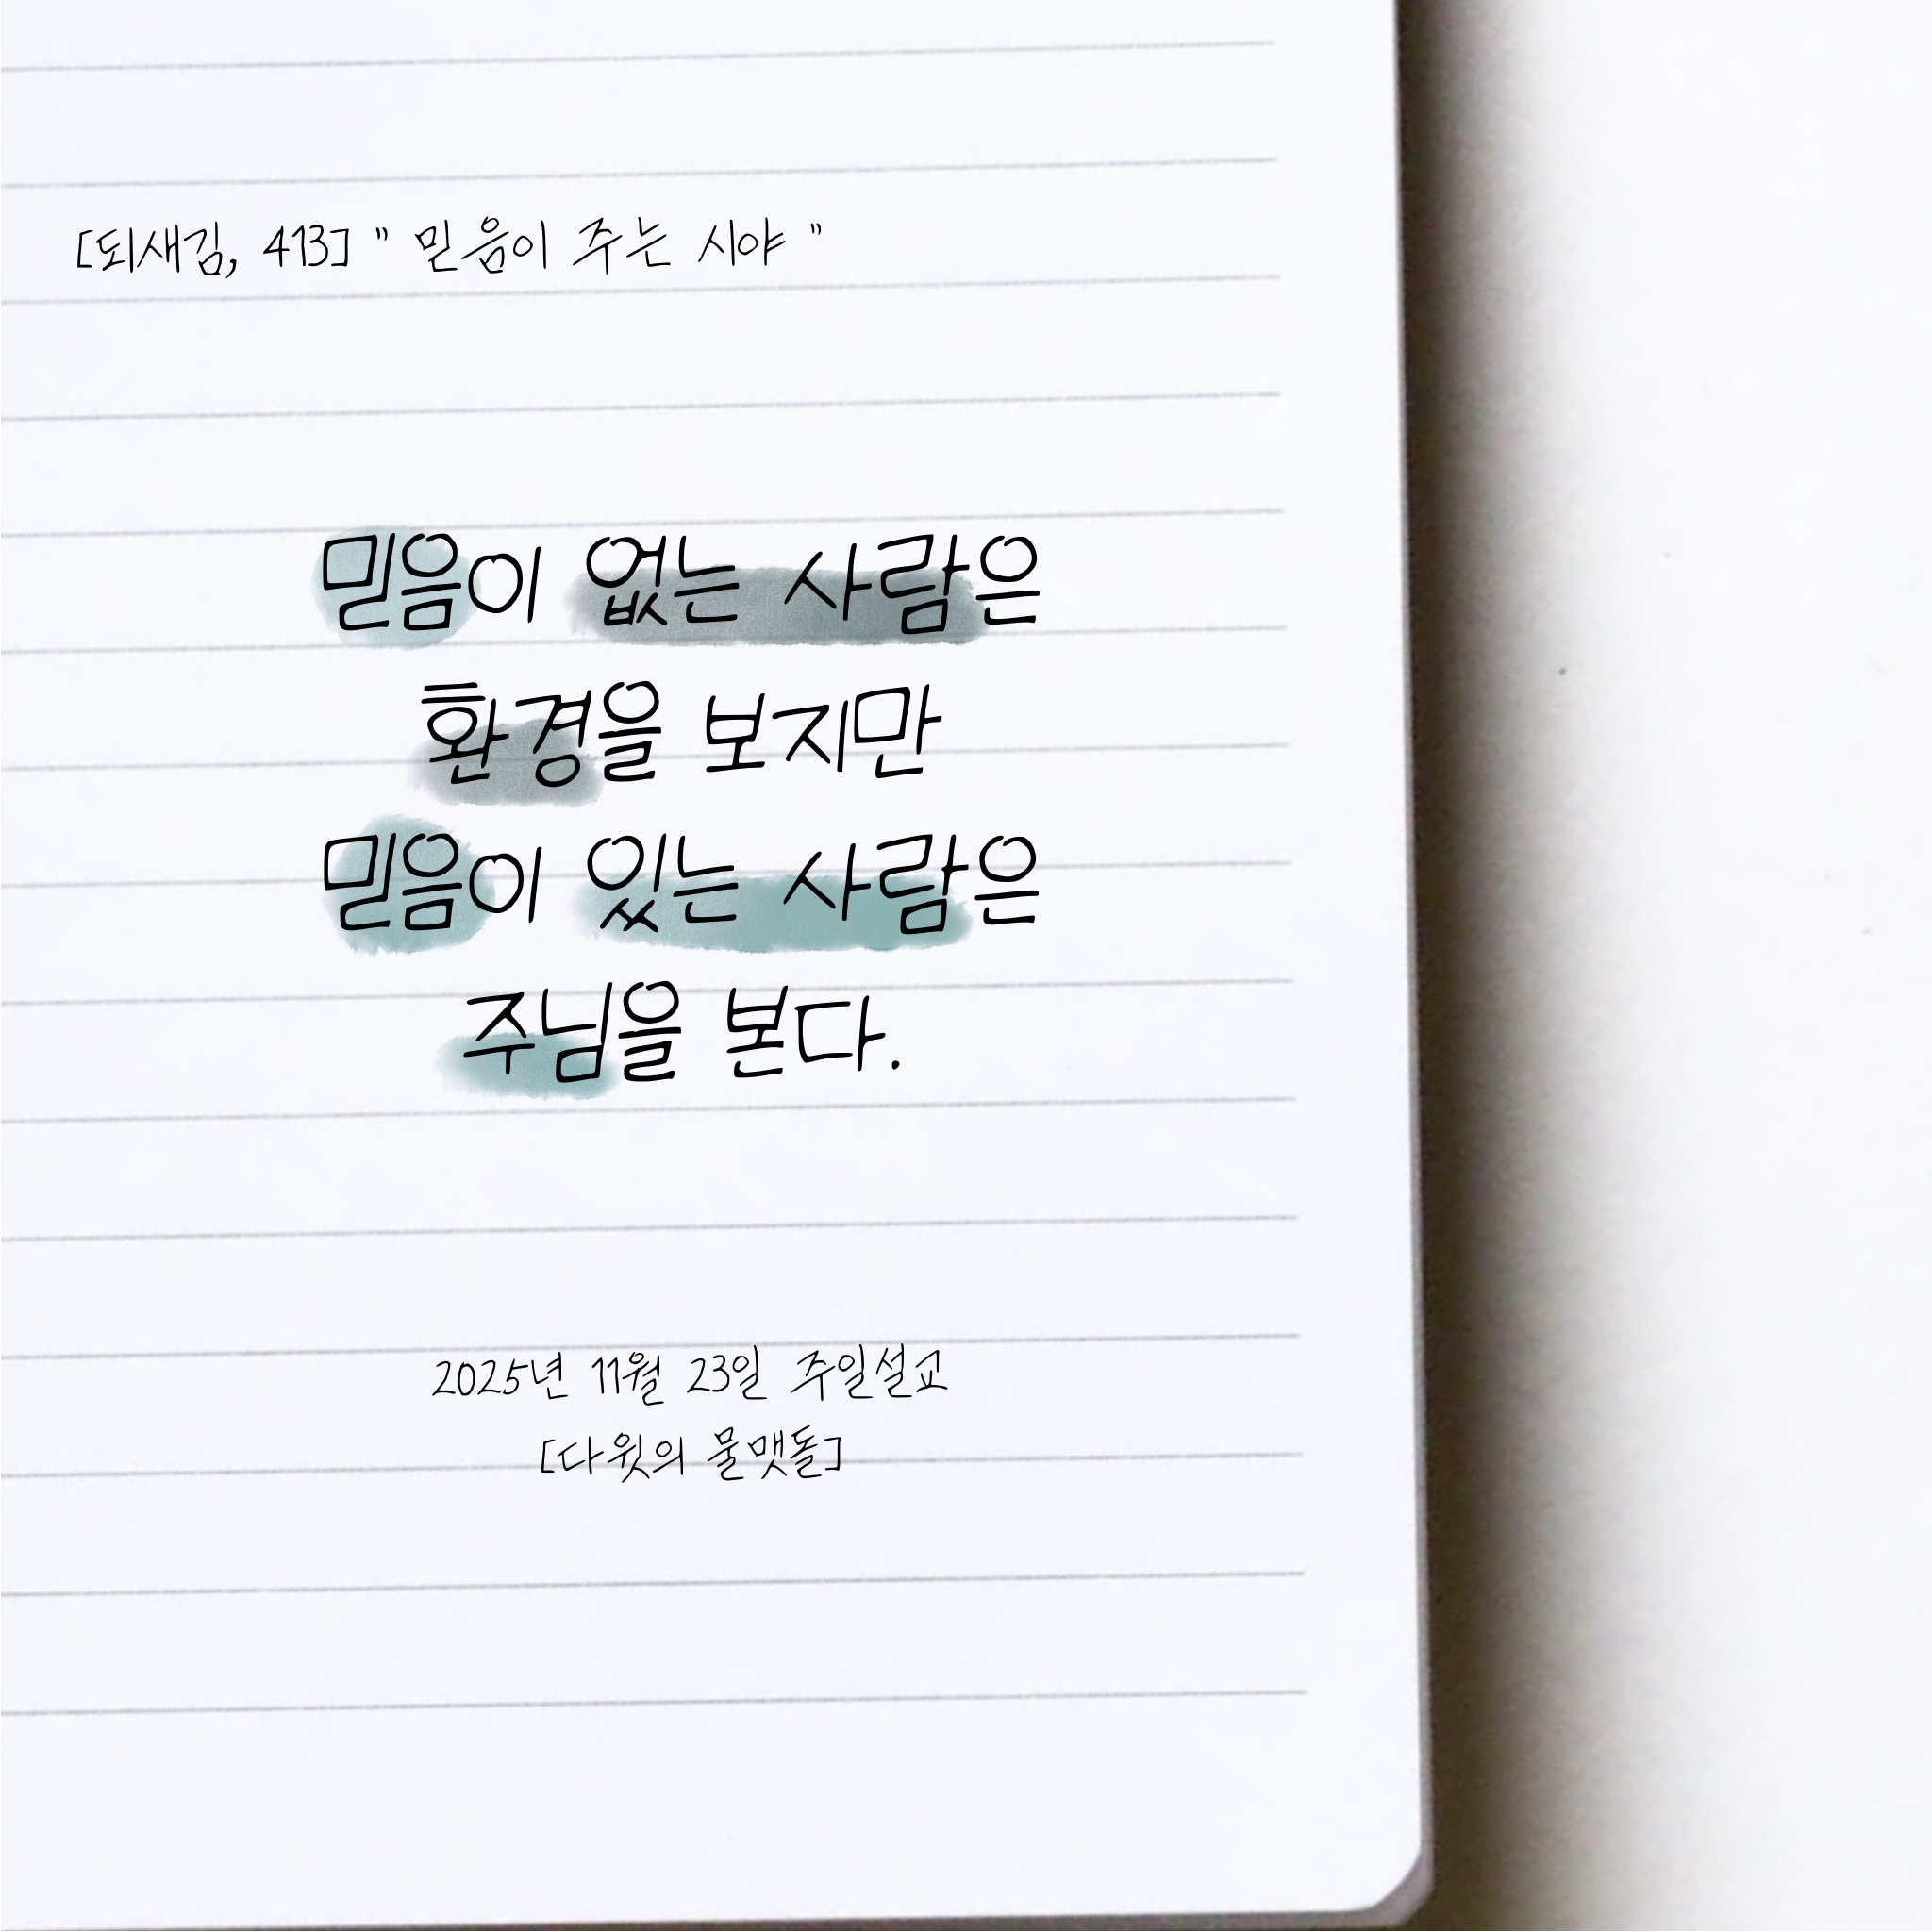 [되새김, 413] " 믿음이 주는 시야 "
믿음이 없는 사람은
환경을 보지만
믿음이 있는 사람은
주님을 본다.
2025년 11월 23일 주일설교
[다윗의 물맷돌]